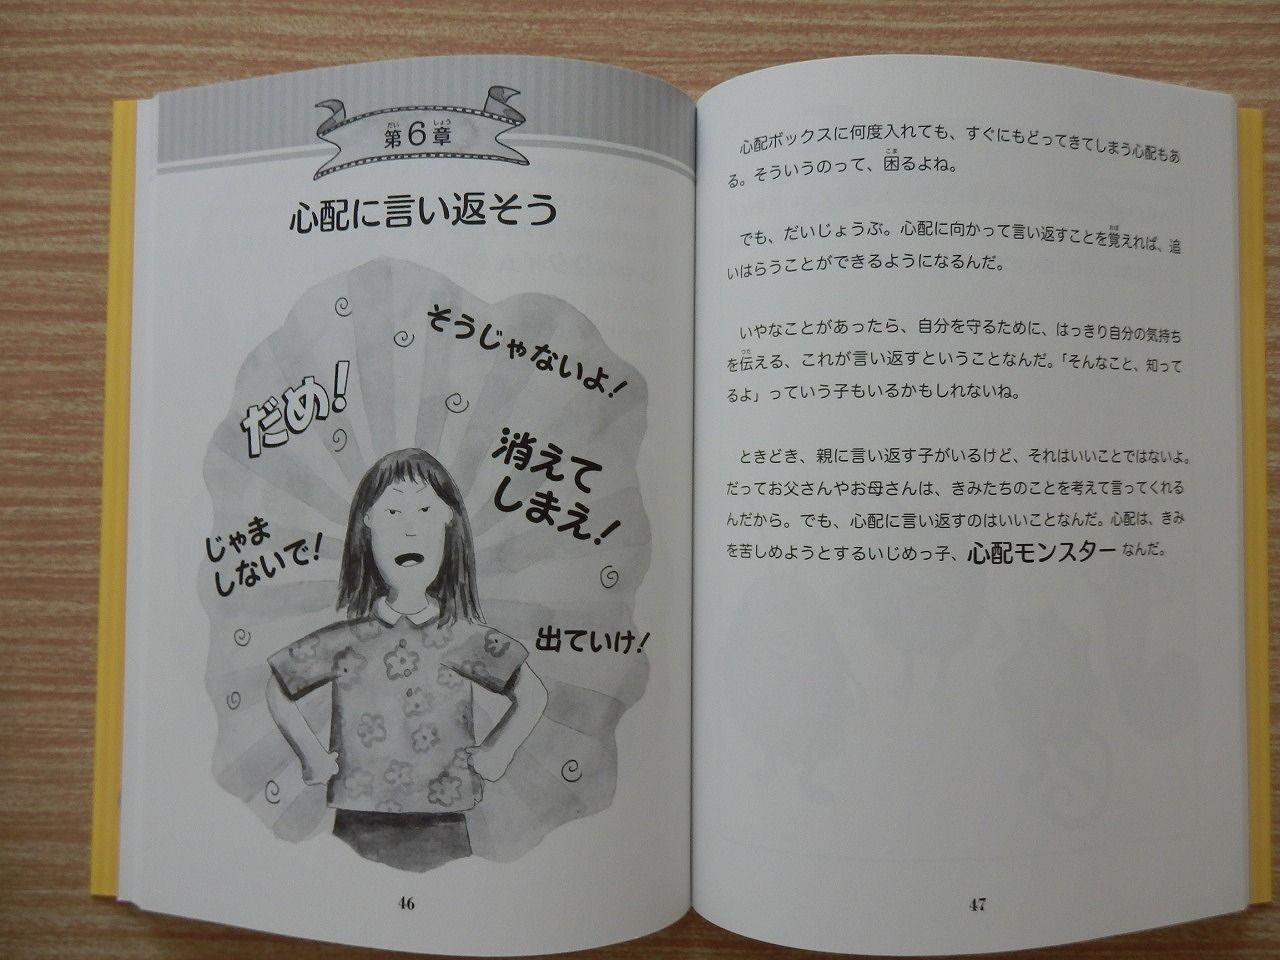 第6章
心配に言い返そう
そうじゃないよ！
だめ！
消えて
しまえ！
じゃま
しないで！
出ていけ！
46
心配ボックスに何度入れても、すぐにもどってきてしまう心配もあ
る。そういうのって、困るよね。
でも、だいじょうぶ。心配に向かって言い返すことを覚えれば、追
いはらうことができるようになるんだ。
いやなことがあったら、自分を守るために、はっきり自分の気持ち
を伝える、これが言い返すということなんだ。「そんなこと、知って
るよ」っていう子もいるかもしれないね。
ときどき、親に言い返す子がいるけど、それはいいことではないよ。
だってお父さんやお母さんは、きみたちのことを考えて言ってくれる
んだから。でも、心配に言い返すのはいいことなんだ。心配は、きみ
を苦しめようとするいじめっ子、心配モンスターなんだ。
47